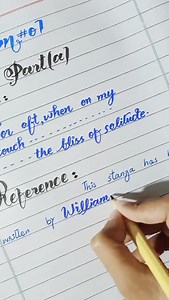 on #07
Part(a)
:
or oft, when on my
ouch .............
......... the bliss of solitude.
Reference:
This stanza has
written by William